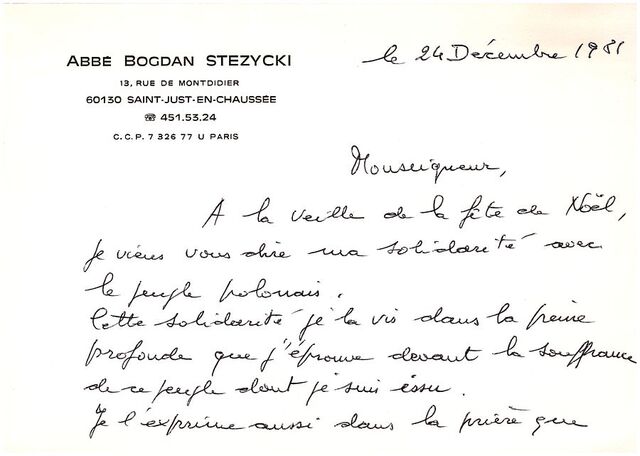 ABBÉ BOGDAN STEZYCKI
13, RUE DE MONTDIDIER
60130 SAINT-JUST-EN-CHAUSSÉE
☎ 451.53.24
C.C.P. 7 326 77 U PARIS
le 24 Décembre 1981
Monseigneur,
A la veille de la fête de Noël,
je viens vous dire ma solidarité avec
le peuple polonais.
Cette solidarité je la vis dans la peine
profonde que j'éprouve devant la souffrance
de ce peuple dont je suis issu.
Je l'exprime aussi dans la prière que